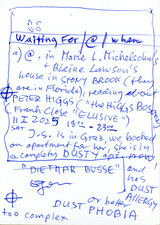 Waiting For /@/ when
a) @, in Marie L. Michelsohn's
+ Blaine Lawson's
house in STONY BROOK (they
are in Florida), reading about
PETER HIGGS ("the HIGGS BOS
Frank Close "ELUSIVE")
II I 2025 18
SAT
J.S. is in Graz, we booked
an apartment for her, she is in
a completely DUSTY apt.
"DIETMAR BUSSE" and!
he's
DUST
ALLERGY
DUST or better
PHOBIA
too complex